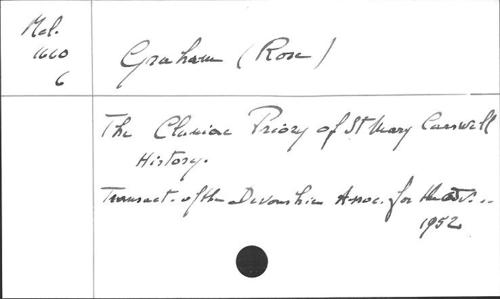 Mél.
1660
6
Graham (Rose)
The Cluniac Priory of St Mary Carswell
History.
Transact. of the Devonshire Assoc. for the adv. ..
1952